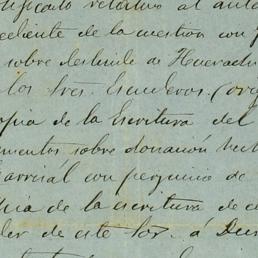 rtificado relativo al auto
pediente de la cuestion con
sobre deslinde de Huerach
los tres Escuderos. (orig
opia de la Escritura del
mentos sobre donación hech
Carrerál con perjuicio de
pia de la escritura de c
der de este Sor. á